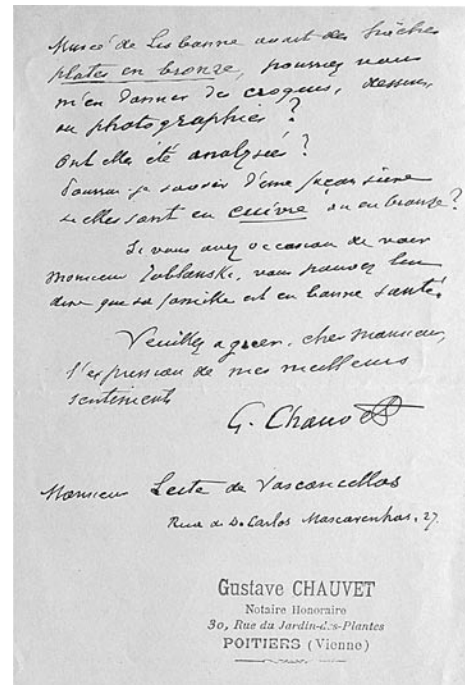 Musée de Lisbonne avait des flèches
plates en bronze, pourriez vous
m'en donner des croquis, dessins,
ou photographies ?
Ont elles été analysées ?
Pourrai-je savoir d'une façon sûre
si elles sont en cuivre ou en bronze ?
Si vous avez occasion de voir
Monsieur Zoblanski, vous pouvez lui
dire que sa famille est en bonne santé.
Veuillez agréer, cher Monsieur,
l'expression de mes meilleurs
sentiments
G. Chauvet
Monsieur Leite de Vasconcellos
Rua de D. Carlos Mascarenhas, 27.
Gustave CHAUVET
Notaire Honoraire
30, Rue du Jardin-des-Plantes
POITIERS (Vienne)